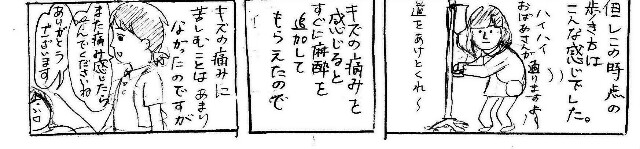 但しこの時点の
歩き方は
こんな感じでした。
ハイハイ
おばあさんが通りますよ〜
道をあけとくれ〜
キズの痛みを
感じると
すぐに麻酔を
追加して
もらえたので
キズの痛みに
苦しむことはあまり
なかったのですが
また痛み感じたら
呼んでくださいね
ありがとう
ございます